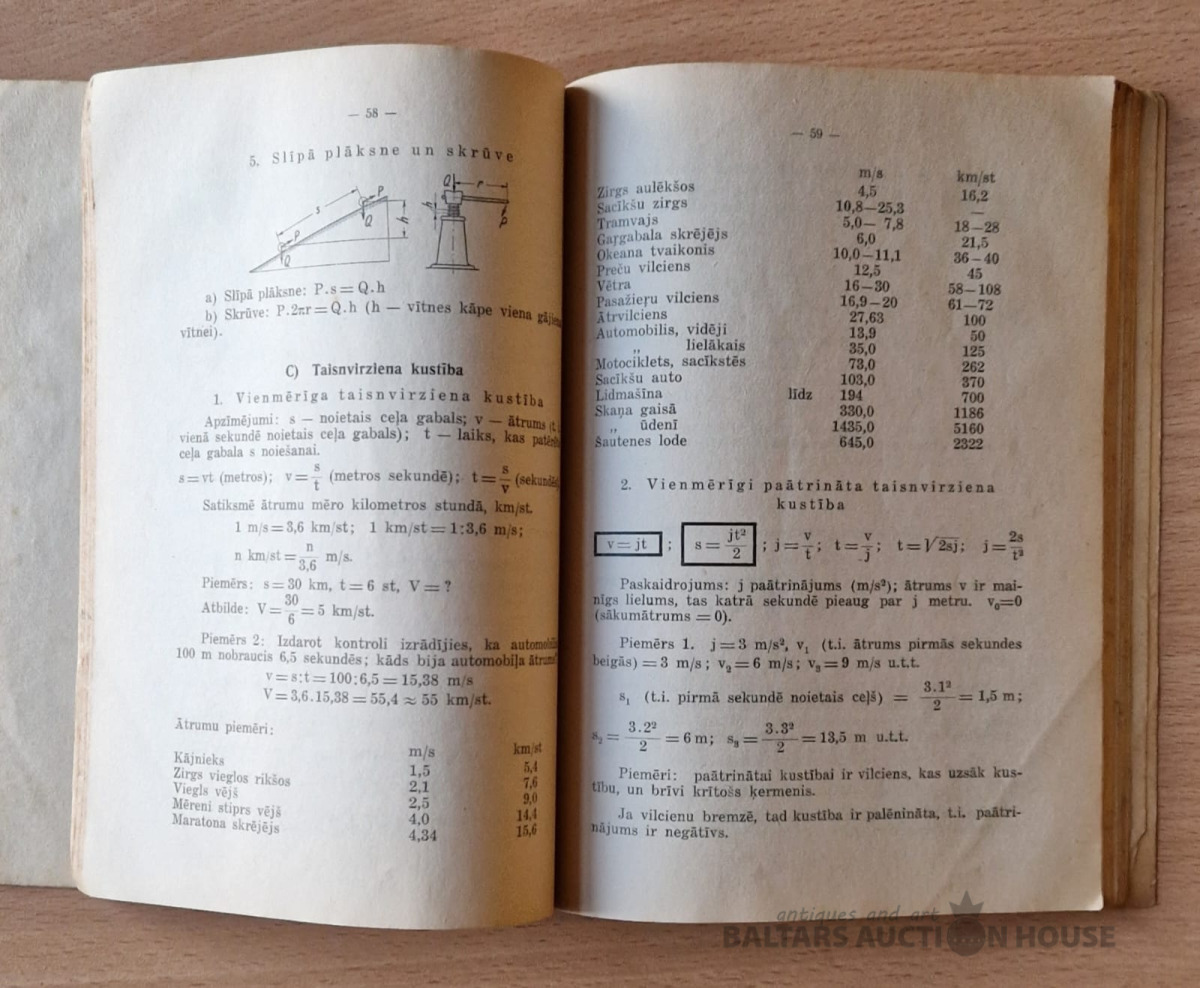 — 58 —
5. Slīpā plāksne un skrūve
s P Q h P Q
Q r h P
a) Slīpā plāksne: P.s = Q.h
b) Skrūve: P.2πr = Q.h (h — vītnes kāpe viena
vītnei).
C) Taisnvirziena kustība
1. Vienmērīga taisnvirziena kustība
Apzīmējumi: s — noietais ceļa gabals; v — ātrums (t.i.
vienā sekundē noietais ceļa gabals); t — laiks, kas
ceļa gabala s noiešanai.
s = vt (metros); v = s/t (metros sekundē); t = s/v
Satiksmē ātrumu mēro kilometros stundā, km/st.
1 m/s = 3,6 km/st; 1 km/st = 1:3,6 m/s;
n km/st = n/3,6 m/s.
Piemērs: s = 30 km, t = 6 st, V = ?
Atbilde: V = 30/6 = 5 km/st.
Piemērs 2: Izdarot kontroli izrādījies, ka
100 m nobraucis 6,5 sekundēs; kāds bija automobiļa
v = s:t = 100:6,5 = 15,38 m/s
V = 3,6.15,38 = 55,4 ≈ 55 km/st.
Ātrumu piemēri:
m/s km/st
Kājnieks 1,5 5,4
Zirgs vieglos rikšos 2,1 7,6
Viegls vējš 2,5 9,0
Mēreni stiprs vējš 4,0 14,4
Maratona skrējējs 4,34 15,6
— 59 —
m/s km/st
Zirgs aulēkšos 4,5 16,2
Sacīkšu zirgs 10,8—25,3 —
Tramvajs 5,0— 7,8 18—28
Gaŗgabala skrējējs 6,0 21,5
Okeana tvaikonis 10,0—11,1 36—40
Preču vilciens 12,5 45
Vētra 16—30 58—108
Pasažieŗu vilciens 16,9—20 61—72
Ātrvilciens 27,63 100
Automobilis, vidēji 13,9 50
„ lielākais 35,0 125
Motociklets, sacīkstēs 73,0 262
Sacīkšu auto 103,0 370
Lidmašīna līdz 194 700
Skaņa gaisā 330,0 1186
„ ūdenī 1435,0 5160
Šautenes lode 645,0 2322
2. Vienmērīgi paātrināta taisnvirziena
kustība
v = jt ; s = jt²/2 ; j = v/t; t = v/j; t = √2sj; j = 2s/t²
Paskaidrojums: j paātrinājums (m/s²); ātrums v ir mai-
nīgs lielums, tas katrā sekundē pieaug par j metru. v₀=0
(sākumātrums = 0).
Piemērs 1. j = 3 m/s², v₁ (t.i. ātrums pirmās sekundes
beigās) = 3 m/s; v₂ = 6 m/s; v₃ = 9 m/s u.t.t.
s₁ (t.i. pirmā sekundē noietais ceļš) = 3.1²/2 = 1,5 m;
s₂ = 3.2²/2 = 6 m; s₃ = 3.3²/2 = 13,5 m u.t.t.
Piemēri: paātrinātai kustībai ir vilciens, kas uzsāk kus-
tību, un brīvi krītošs ķermenis.
Ja vilcienu bremzē, tad kustība ir palēnināta, t.i. paātri-
nājums ir negātīvs.
antiques and art
BALTARS AUCTION HOUSE